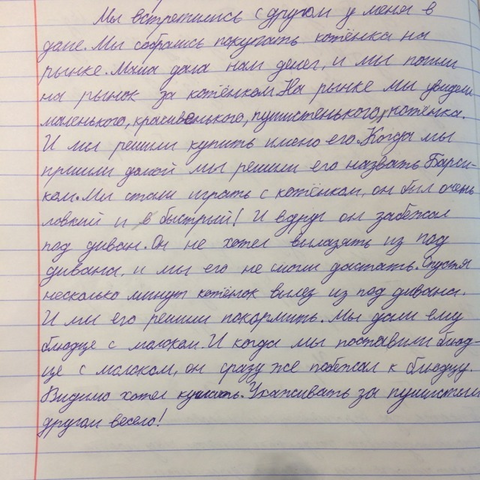 Мы встретились с другом у меня в
доме. Мы собрались покупать котёнка на
рынке. Мама дала нам денег, и мы пошли
на рынок за котёнком. На рынке мы увидели
маленького, красивенького, пушистенького, котёнка.
И мы решили купить имено его. Когда мы
пришли домой мы решили его назвать Барси-
ком. Мы стали играть с котёнком, он был очень
ловкий и в быстрый! И вдруг он забежал
под диван. Он не хотел вылазять из под
дивана, и мы его не могли достать. Спустя
несколько минут котёнок вылез из под дивана.
И мы его решили покормить. Мы дали ему
блюдце с молоком. И когда мы поставили блюд-
це с молоком, он сразу же побежал к блюдцу.
Видимо хотел кушать. Ухаживать за пушистым
другом весело!